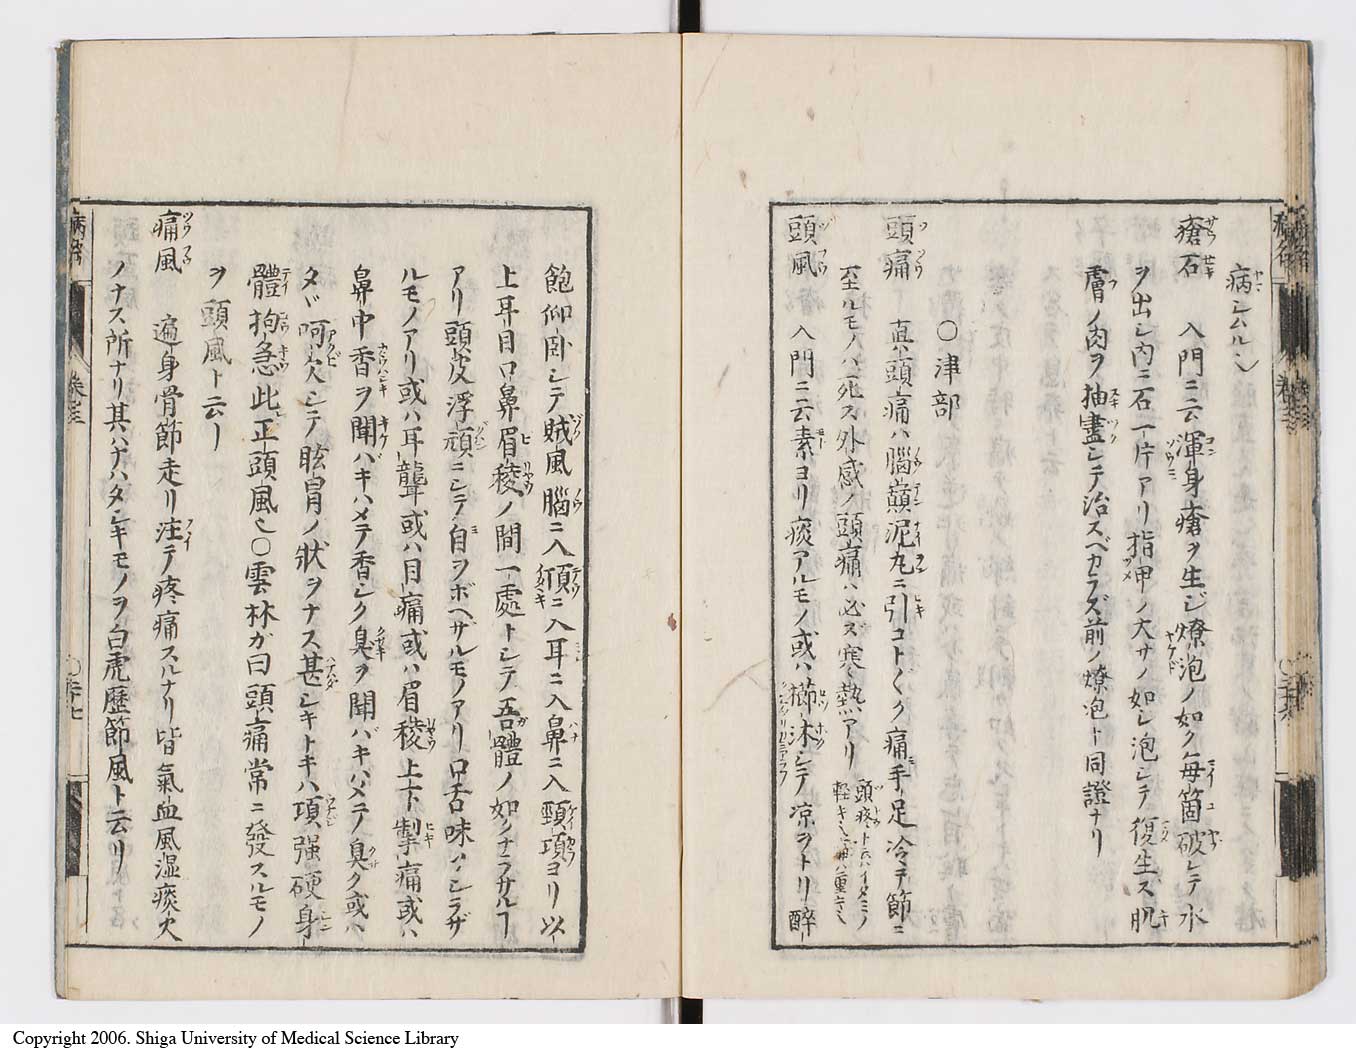 病シムルノ
瘡石　入門ニ云渾身瘡ヲ生ジ燎泡ノ如ク毎箇破レテ水
ヲ出シ内ニ石一片アリ指甲ノ大サノ如シ泡シテ復生ス肌
膚ノ肉ヲ抽盡シテ治スベカラズ前ノ燎泡ト同證ナリ
○津部
頭痛　真頭痛ハ腦巓泥丸ニ引コト〱ク痛手足冷テ節ニ
至ルモノハ死ス外感ノ頭痛ハ必ズ寒〻熱アリ
頭疼ト云ハイタミノ
軽キ也痛ハ重キ也
頭風　入門ニ云素ヨリ痰アルモノ或ハ櫛沐シテ凉ヲトリ醉
飽仰臥シテ賊風腦ニ入項ニ入耳ニ入鼻ニ入頸項ヨリ以
上耳目口鼻眉稜ノ間一處トシテ吾體ノ如クナラサルヿ
アリ頭皮浮頑ニシテ自ヲボヘザルモノアリ口舌味アシラザ
ルモノアリ或ハ耳聾或ハ目痛或ハ眉稜上下掣痛或ハ
鼻中香ヲ聞ハキハメテ香シク臭ヲ聞バキハメテ臭ク或ハ
タヾ呵欠シテ眩冒ノ狀ヲナス甚シキトキハ項强硬身
體拘急此正頭風也○雲林ガ曰頭痛常ニ發スルモノ
ヲ頭風ト云ヿ
痛風　遍身骨節走リ注テ疼痛スルナリ皆氣血風湿痰火
ノナス所ナリ其ハナハタシキモノヲ白虎歴節風ト云リ
Copyright 2006. Shiga University of Medical Science Library